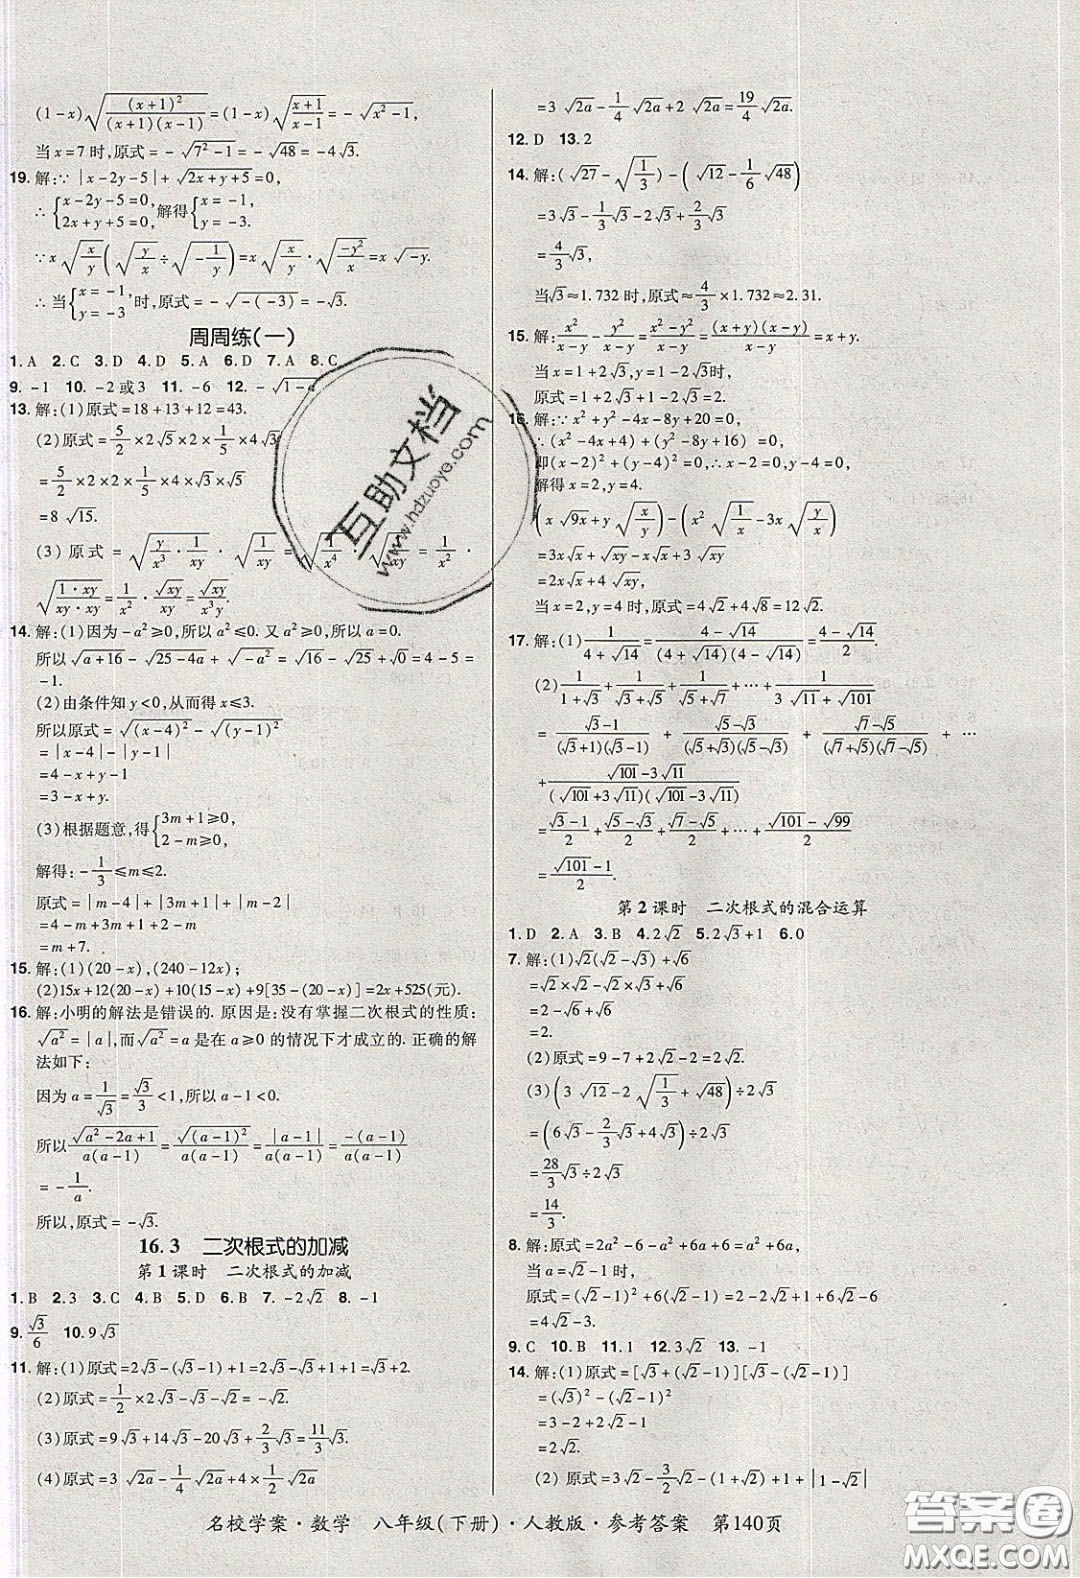 (1-x)√((x+1)²/((x+1)(x-1)))=(1-x)√((x+1)/(x-1))=-√(x²-1),
当x=7时,原式=-√(7²-1)=-√48=-4√3.
19.解:∵|x-2y-5|+√(2x+y+5)=0,
∴{x-2y-5=0, 2x+y+5=0,解得{x=-1, y=-3.
∵x√(x/y)(√(y/x)÷√(-1/y))=x√(x/y)·√(-y²/x)=x√-y.
∴当{x=-1, y=-3,时,原式=-√(-(-3))=-√3.
周周练(一)
1.A 2.C 3.D 4.D 5.A 6.D 7.A 8.C
9.-1 10.-2或3 11.-6 12.-√(1-a
13.解:(1)原式=18+13+12=43.
(2)原式=5/2×2√5×2×1/5×4√3
=5/2×2×1/5×4×√3×√5
=8√15.
(3)原式=√(y/x³·1/xy)·√(1/xy)=√(1/x⁴)·√(1/xy)=1/x²·
√(1·xy/(xy·xy))=1/x²·√xy/xy=√xy/x³y.
14.解:(1)因为-a²≥0,所以a²≤0.又a²≥0,所以a=0.
所以√(a+16)-√(25-4a)+√(-a²)=√16-√25+√0=4-5=
-1.
(2)由条件知y<0,从而得x≤3.
所以原式=√((x-4)²)-√((y-1)²)
=|x-4|-|y-1|
=4-x+y-1
=3-x+y.
(3)根据题意,得{3m+1≥0, 2-m≥0,
解得:-1/3≤m≤2.
原式=|m-4|+|3m+1|+|m-2|
=4-m+3m+1+2-m
=m+7.
15.解:(1)(20-x),(240-12x);
(2)15x+12(20-x)+10(15-x)+9[35-(20-x)]=2x+525(元).
16.解:小明的解法是错误的.原因是:没有掌握二次根式的性质:
√a²=|a|,而√a²=a是在a≥0的情况下才成立的.正确的解
法如下:
因为a=1/√3=√3/3<1,所以a-1<0.
所以√(a²-2a+1)/(a(a-1))=√((a-1)²)/(a(a-1))=|a-1|/(a(a-1))=-(a-1)/(a(a-1))
=-1/a.
所以,原式=-√3.
16.3 二次根式的加减
第1课时 二次根式的加减
1.B 2.3 3.C 4.B 5.D 6.B 7.-2√2 8.-1
9.√3/6 10.9√3
11.解:(1)原式=2√3-(√3-1)+1=2√3-√3+1+1=√3+2.
(2)原式=1/2×2√3-√3-√3=√3-2√3=-√3.
(3)原式=9√3+14√3-20√3+2/3√3=11/3√3.
(4)原式=3√2a-1/4√2a+4×1/2√2a
=3√2a-1/4√2a+2√2a=19/4√2a.
12.D 13.2
14.解:(√27-√(1/3))-(√12-1/6√48)
=3√3-1/3√3-2√3+2/3√3
=4/3√3,
当√3≈1.732时,原式≈4/3×1.732≈2.31.
15.解:x²/(x-y)-y²/(x-y)=(x²-y²)/(x-y)=(x+y)(x-y)/(x-y)=x+y.
当x=1+2√3,y=1-2√3时,
原式=1+2√3+1-2√3=2.
16.解:∵x²+y²-4x-8y+20=0,
∴(x²-4x+4)+(y²-8y+16)=0,
即(x-2)²+(y-4)²=0,
解得x=2,y=4.
(x√9x+y√(x/y))-(x²√(1/x)-3x√(y/x))
=3x√x+√xy-x√x+3√xy
=2x√x+4√xy,
当x=2,y=4时,原式=4√2+4√8=12√2.
17.解:(1)1/(4+√14)=(4-√14)/((4+√14)(4-√14))=(4-√14)/2.
(2)1/(1+√3)+1/(√3+√5)+1/(√5+√7)+…+1/(3√11+√101)
=(√3-1)/((√3+1)(√3-1))+(√5-√3)/((√5+√3)(√5-√3))+(√7-√5)/((√7+√5)(√7-√5))+…
+(√101-3√11)/((√101+3√11)(√101-3√11))
=(√3-1)/2+(√5-√3)/2+(√7-√5)/2+…+(√101-√99)/2
=(√101-1)/2.
第2课时 二次根式的混合运算
1.D 2.A 3.B 4.2√2 5.2√3+1 6.0
7.解:(1)√2(√2-√3)+√6
=√2×√2-√2×√3+√6
=2-√6+√6
=2.
(2)原式=9-7+2√2-2=2√2.
(3)(3√12-2√(1/3)+√48)÷2√3
=(6√3-2/3√3+4√3)÷2√3
=28/3√3÷2√3
=14/3.
8.解:原式=2a²-6-a²+6a+6=a²+6a,
当a=√2-1时,
原式=(√2-1)²+6(√2-1)=2-2√2+1+6√2-6
=4√2-3.
9.C 10.B 11.1 12.3√2 13.-1
14.解:(1)原式=[√3+(√2-1)][√3-(√2-1)]
=(√3)²-(√2-1)²
=3-(2-2√2+1)
=3-2+2√2-1
=2√2.
(2)原式=3√2-3/2√2-(1+√2)+|1-√2|
名校学案·数学 八年级(下册)·人教版·参考答案 第140页
互助文档
www.hdzuoye.com
答案圈
MXQE.COM